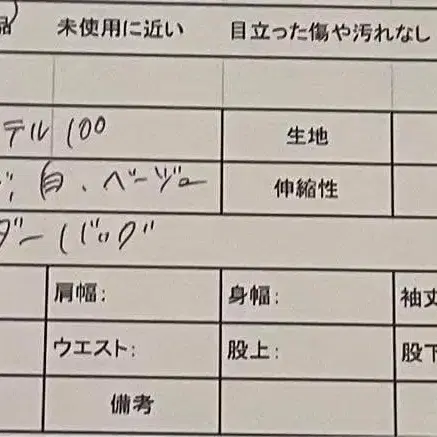 品 未使用に近い 目立った傷や汚れなし
テル 100 生地
白、ベージュー 伸縮性
ダーバッグ
肩幅: 身幅: 袖丈
ウエスト: 股上: 股下
備考